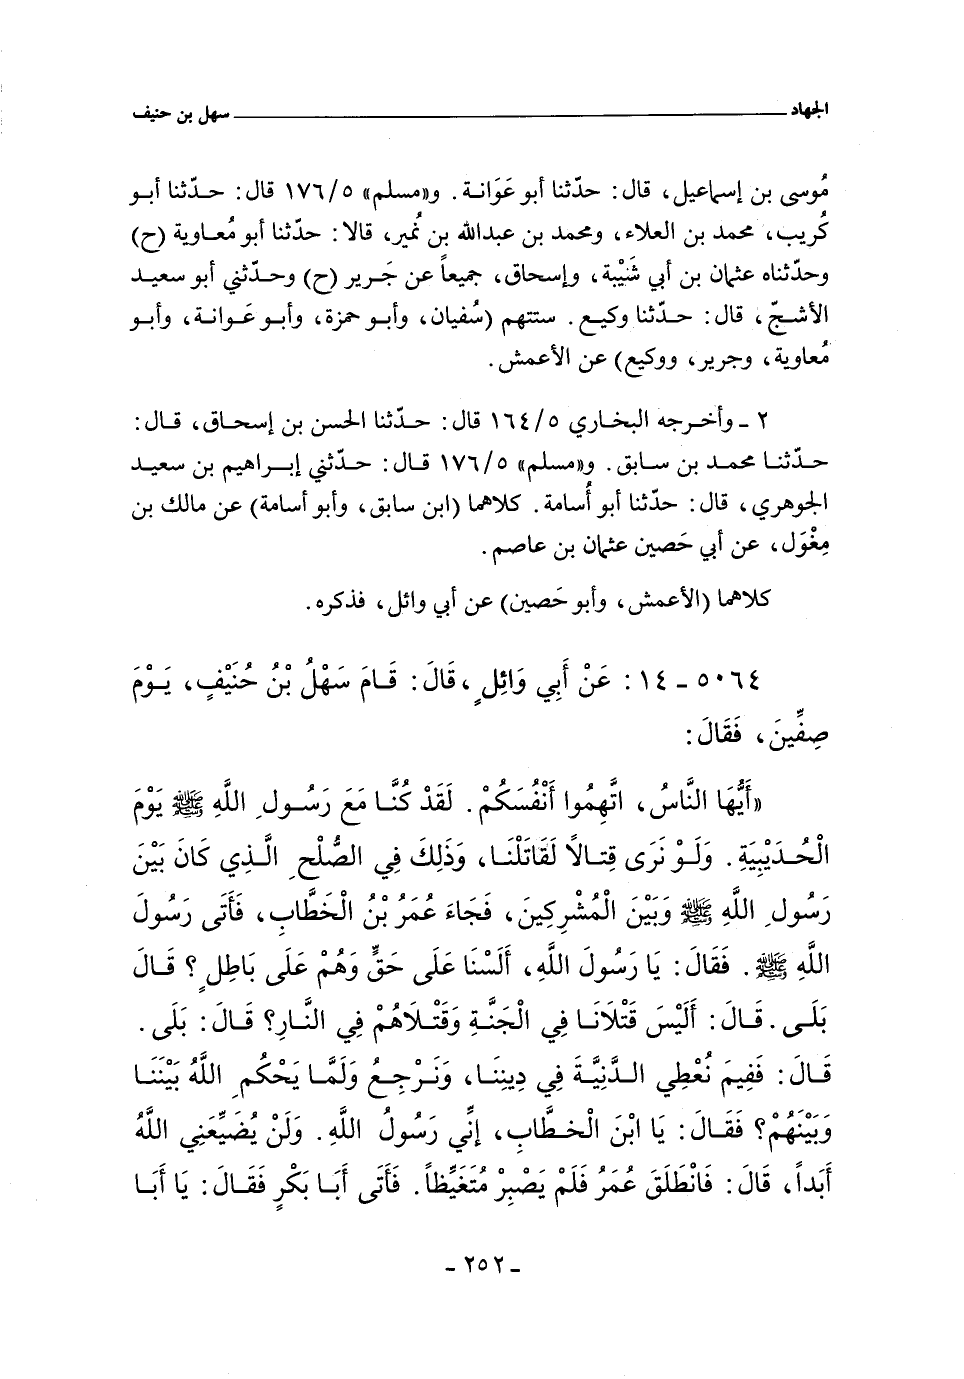 الجهاد ــــــــــ سهل بن حنيف
مُوسى بن إسماعيل، قال: حدّثنا أبو عَوَانة. و«مسلم» ١٧٦/٥ قال: حدّثنا أبو
كُريب، محمد بن العلاء، ومحمد بن عبدالله بن نُمير، قالا: حدّثنا أبو مُعاوية (ح)
وحدّثناه عثمان بن أبي شَيْبة، وإسحاق، جميعاً عن جَرير (ح) وحدّثني أبو سعيد
الأشجّ، قال: حدّثنا وكيع. ستتهم (سُفيان، وأبو حمزة، وأبو عَوانة، وأبو
مُعاوية، وجرير، ووكيع) عن الأعمش.
٢ ـ وأخرجه البخاري ١٦٤/٥ قال: حدّثنا الحسن بن إسحاق، قال:
حدّثنا محمد بن سابق. و«مسلم» ١٧٦/٥ قال: حدّثني إبراهيم بن سعيد
الجوهري، قال: حدّثنا أبو أُسامة. كلاهما (ابن سابق، وأبو أسامة) عن مالك بن
مِغْوَل، عن أبي حَصين عثمان بن عاصم.
كلاهما (الأعمش، وأبو حَصين) عن أبي وائل، فذكره.
٥٠٦٤ ـ ١٤: عَنْ أَبِي وَائِلٍ، قَالَ: قَامَ سَهْلُ بْنُ حُنَيْفٍ، يَوْمَ
صِفِّينَ، فَقَالَ:
«أَيُّهَا النَّاسُ، اتَّهِمُوا أَنْفُسَكُمْ. لَقَدْ كُنَّا مَعَ رَسُولِ اللَّهِ ﷺ يَوْمَ
الْحُدَيْبِيَةِ. وَلَوْ نَرَى قِتَالاً لَقَاتَلْنَا، وَذَلِكَ فِي الصُّلْحِ الَّذِي كَانَ بَيْنَ
رَسُولِ اللَّهِ ﷺ وَبَيْنَ الْمُشْرِكِينَ، فَجَاءَ عُمَرُ بْنُ الْخَطَّابِ، فَأَتَى رَسُولَ
اللَّهِ ﷺ. فَقَالَ: يَا رَسُولَ اللَّهِ، أَلَسْنَا عَلَى حَقٍّ وَهُمْ عَلَى بَاطِلٍ؟ قَالَ
بَلَى. قَالَ: أَلَيْسَ قَتْلَانَا فِي الْجَنَّةِ وَقَتْلَاهُمْ فِي النَّارِ؟ قَالَ: بَلَى.
قَالَ: فَفِيمَ نُعْطِي الدَّنِيَّةَ فِي دِينِنَا، وَنَرْجِعُ وَلَمَّا يَحْكُمِ اللَّهُ بَيْنَنَا
وَبَيْنَهُمْ؟ فَقَالَ: يَا ابْنَ الْخَطَّابِ، إِنِّي رَسُولُ اللَّهِ. وَلَنْ يُضَيِّعَنِي اللَّهُ
أَبَداً، قَالَ: فَانْطَلَقَ عُمَرُ فَلَمْ يَصْبِرْ مُتَغَيِّظاً. فَأَتَى أَبَا بَكْرٍ فَقَالَ: يَا أَبَا
ـ ٢٥٢ ـ